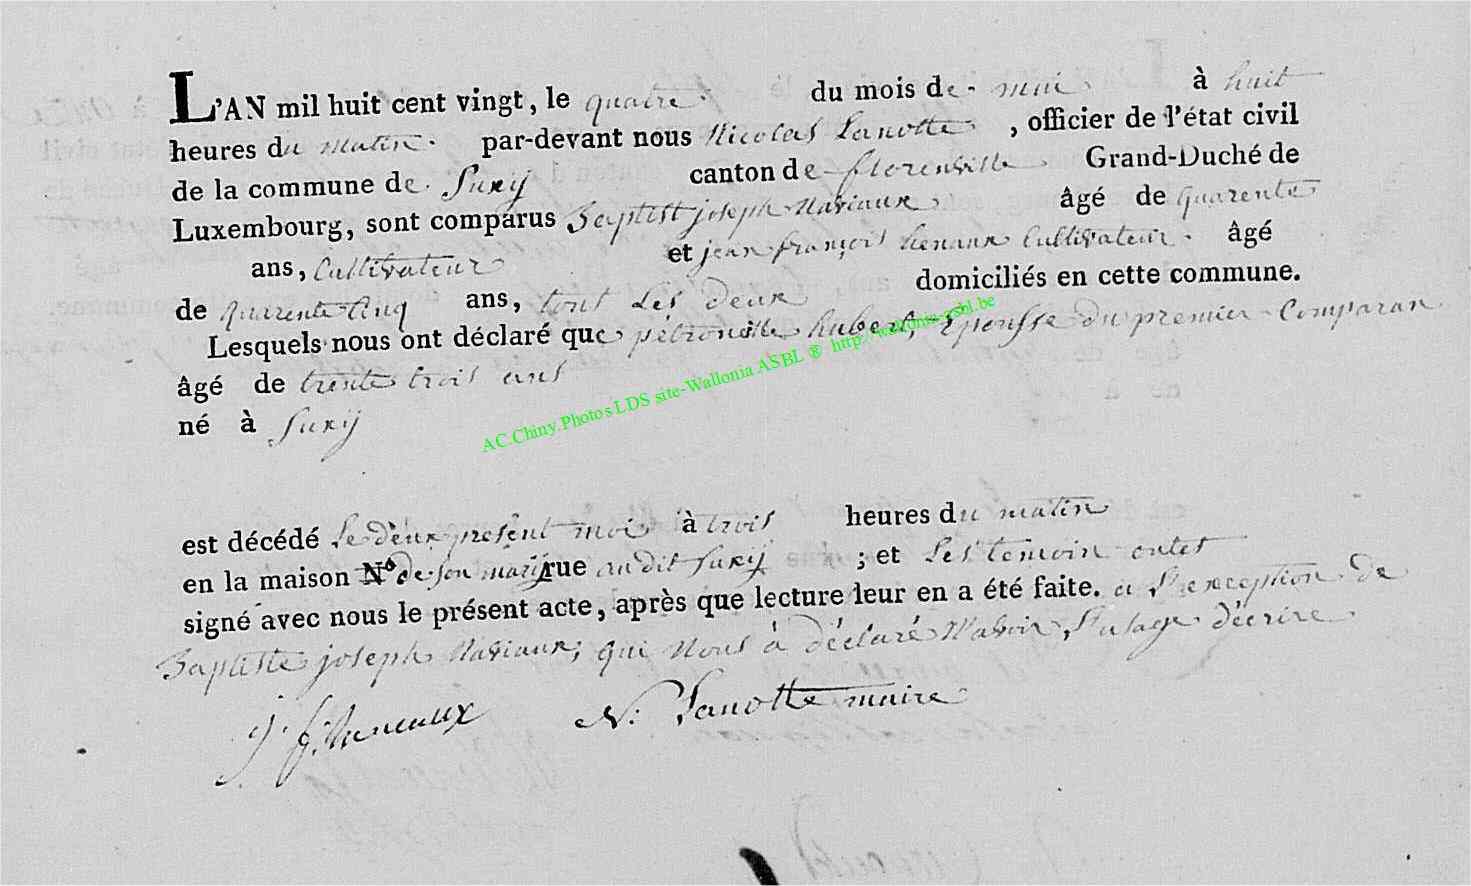 L'AN mil huit cent vingt, le quatre du mois de mai à huit
heures du matin par-devant nous Nicolas Lanotte, officier de l'état civil
de la commune de Suxÿ canton de florenville Grand-Duché de
Luxembourg, sont comparus Baptist joseph Naviaux âgé de quarente
ans, Cultivateur et jean françois henaux Cultivateur âgé
de quarente Cinq ans, tout les deux domiciliés en cette commune.
Lesquels nous ont déclaré que pétronille hubert, Epousse du premier Comparan
âgé de trente trois ans
né à Suxÿ
AC.Chiny.Photos LDS site-Wallonia ASBL ® http://wallonia-asbl.be
est décédé le deux présent moi à trois heures du matin
en la maison N.º de son marÿ rue au dit Suxÿ ; et les temoin ontet
signé avec nous le présent acte, après que lecture leur en a été faite. a l'exception de
Baptiste joseph Naviaux, qui nous à déclaré Navoir l'usage décrire
J. f. heneaux N: Lanotte maire